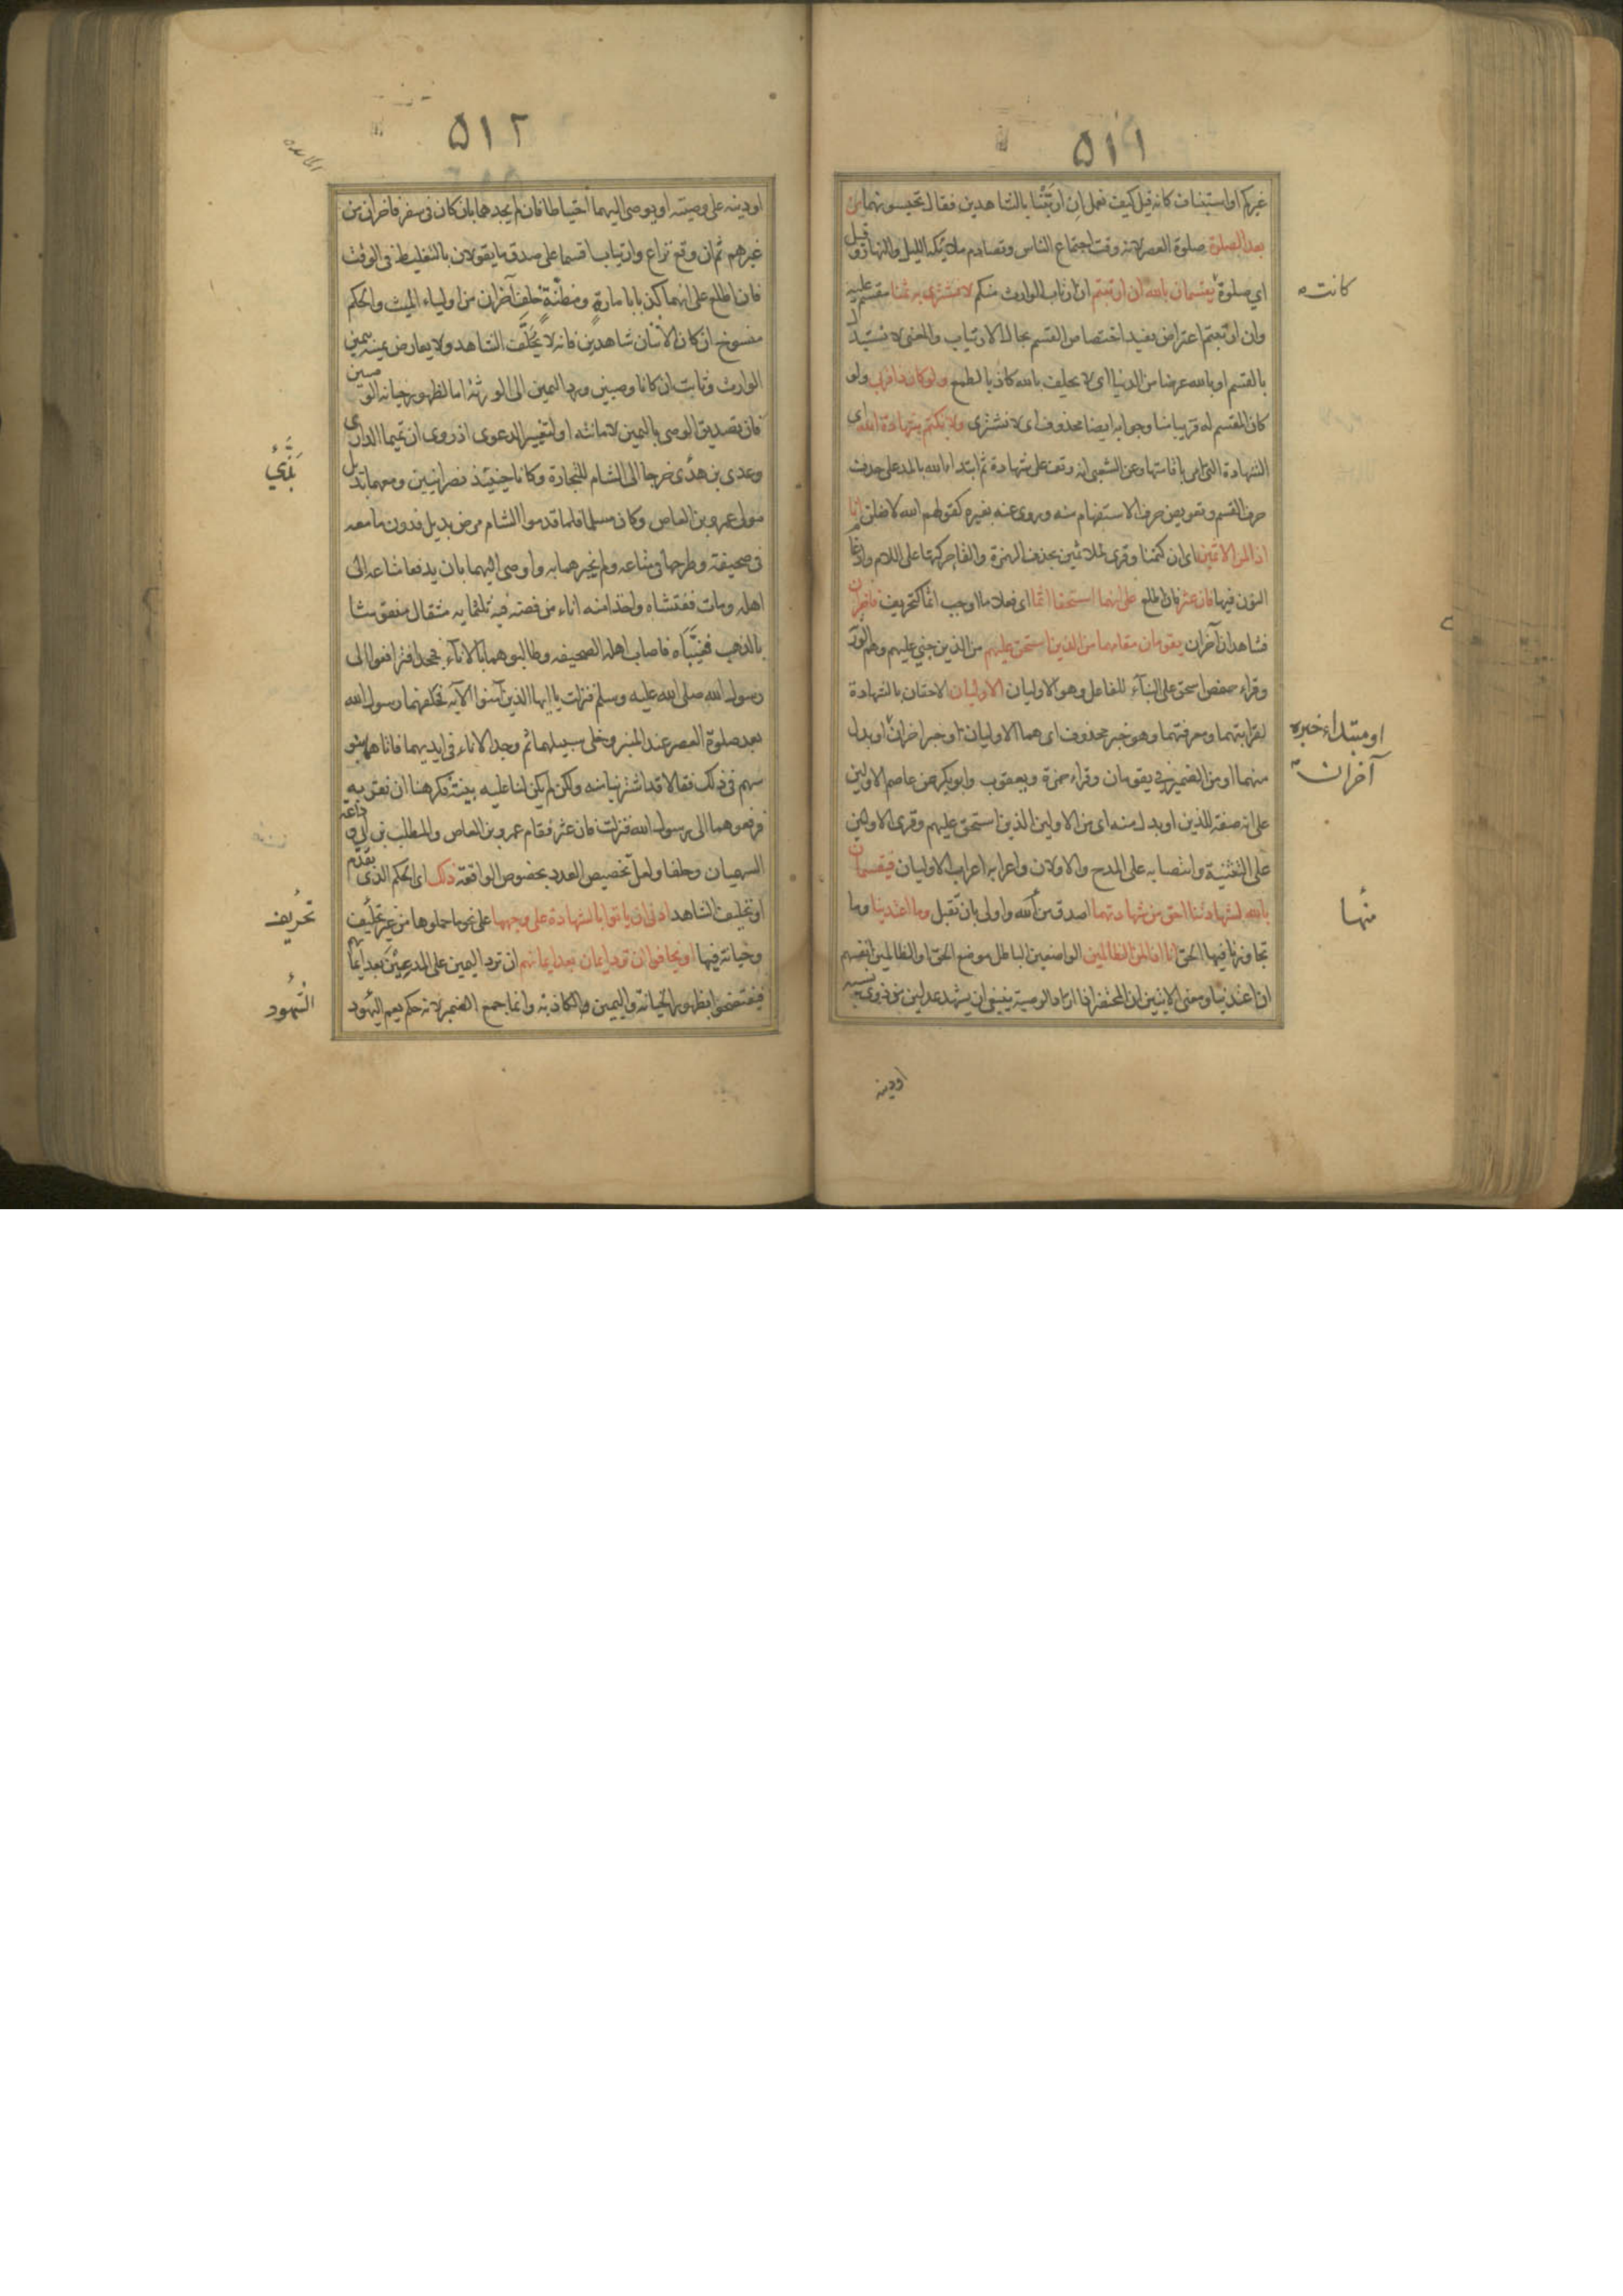 ٥١١
غيركم او استيناف كانه قيل كيف نعمل ان ارتبنا بالشاهدين فقال تحبسونهما من
بعد الصلوة صلوة العصر لانه وقت اجتماع الناس وتصادم ملائكة الليل والنهار وقيل
اي صلوة كانت فيقسمان بالله ان ارتبتم ان ارتاب الوارث منكم لا نشترى به ثمنا مقسم عليه
وان ارتبتم اعتراض يفيد اختصاص القسم بحال الارتياب والمعنى لا نستبدل
بالقسم او بالله عرضا من الدنيا اى لا نحلف بالله كاذبا لطمع ولو كان ذا قربى ولو
كان المقسم له قريبا منا وجوابه ايضا محذوف اى لا نشترى ولا نكتم شهادة الله اى
الشهادة التى امر باقامتها وعن الشعبى انه وقف على شهادة ثم ابتدا الله بالمد على حذف
حرف القسم وتعويض حرف الاستفهام منه وروى عنه بغيره كقولهم الله لافعلن انا
اذا لمن الاثمين اى ان كتمنا وقرئ لملاثمين بحذف الهمزة والقاء حركتها على اللام وادغام
النون فيها فان عثر فان اطلع على انهما استحقا اثما اى فعلا ما اوجب اثما كتحريف فاخران
فشاهدان آخران يقومان مقامهما من الذين استحق عليهم من الذين جنى عليهم وهم الورثة
وقراء حفص استحق على البنآء للفاعل وهو الاوليان الاوليان الاحقان بالشهادة
لقرابتهما ومعرفتهما وهو خبر محذوف اى هما الاوليان او خبر اخران او بدل
منهما او من الضمير فى يقومان وقراء حمزة ويعقوب وابو بكر عن عاصم الاولين
على انه صفة للذين او بدل منه اى من الاولين الذين استحق عليهم وقرئ الاولين
على التثنية وانتصابه على المدح والاولان واعرابه اعراب الاوليان فيقسمان
بالله لشهادتنا احق من شهادتهما اصدق منها واولى بان تقبل وما اعتدينا وما
تجاوزنا فيها الحق انا اذا لمن الظالمين الواضعين الباطل موضع الحق او الظالمين انفسهم
ان اعتدينا ومعنى الايتين ان المحتضر اذا اراد الوصية ينبغى ان يشهد عدلين من ذوى نسبه
كانت
او مبتداء خبره
آخران
منها
اودينه
٥١٢
اودينه على وصيته او يوصى اليهما احتياطا فان لم يجدهما بان كان فى سفر فاخران من
غيرهم ثم ان وقع نزاع وارتياب اقسما على صدق ما يقولان بالتغليظ فى الوقت
فان اطلع على انهما كذبا بامارة ومظنة حلف آخران من اولياء الميت والحكم
منسوخ ان كان الاثنان شاهدين فانه لا يحلف الشاهد ولا يعارض يمينه بيمين
الوارث وثابت ان كانا وصيين ورد اليمين الى الورثة اما لظهور خيانة الوصيين
فان تصديق الوصى باليمين لامانته او لتغيير الدعوى اذ روى ان تميما الدارى
وعدى بن بدى خرجا الى الشام للتجارة وكانا حينئذ نصرانيين ومعهما بديل
مولى عمرو بن العاص وكان مسلما فلما قدموا الشام مرض بديل فدون ما معه
فى صحيفة وطرحها فى متاعه ولم يخبرهما به واوصى اليهما بان يدفعا متاعه الى
اهله ومات ففتشاه واخذا منه اناء من فضة فيه ثلثماية مثقال منقوشا
بالذهب فغيباه فاصاب اهله الصحيفه وطالبوهما بالانآء فجحدا فترافعوا الى
رسول الله صلى الله عليه وسلم فنزلت يا ايها الذين آمنوا الآية فحلفهما رسول الله
بعد صلوة العصر عند المنبر وخلى سبيلهما ثم وجد الاناء فى ايديهما فاتاهما بنو
سهم فى ذلك فقالا قد اشتريناه منه ولكن لم يكن لنا عليه بينة فكرهنا ان نقر به
فرفعوهما الى رسول الله فنزلت فان عثر فقام عمرو بن العاص والمطلب بن ابى وداعة
السهميان وحلفا ولعل تخصيص العدد بخصوص الواقعة ذلك اى الحكم الذى تقدم
او تحليف الشاهد ادنى ان ياتوا بالشهادة على وجهها على نحو ما حملوها من غير تحريف
وخيانة فيها او يخافوا ان ترد ايمان بعد ايمانهم ان ترد اليمين على المدعيين بعد ايمانهم
فيفتضحوا بظهور الخيانة واليمين الكاذبة وانما جمع الضمير لانه حكم يعم الشهود
تحريف
الشهود